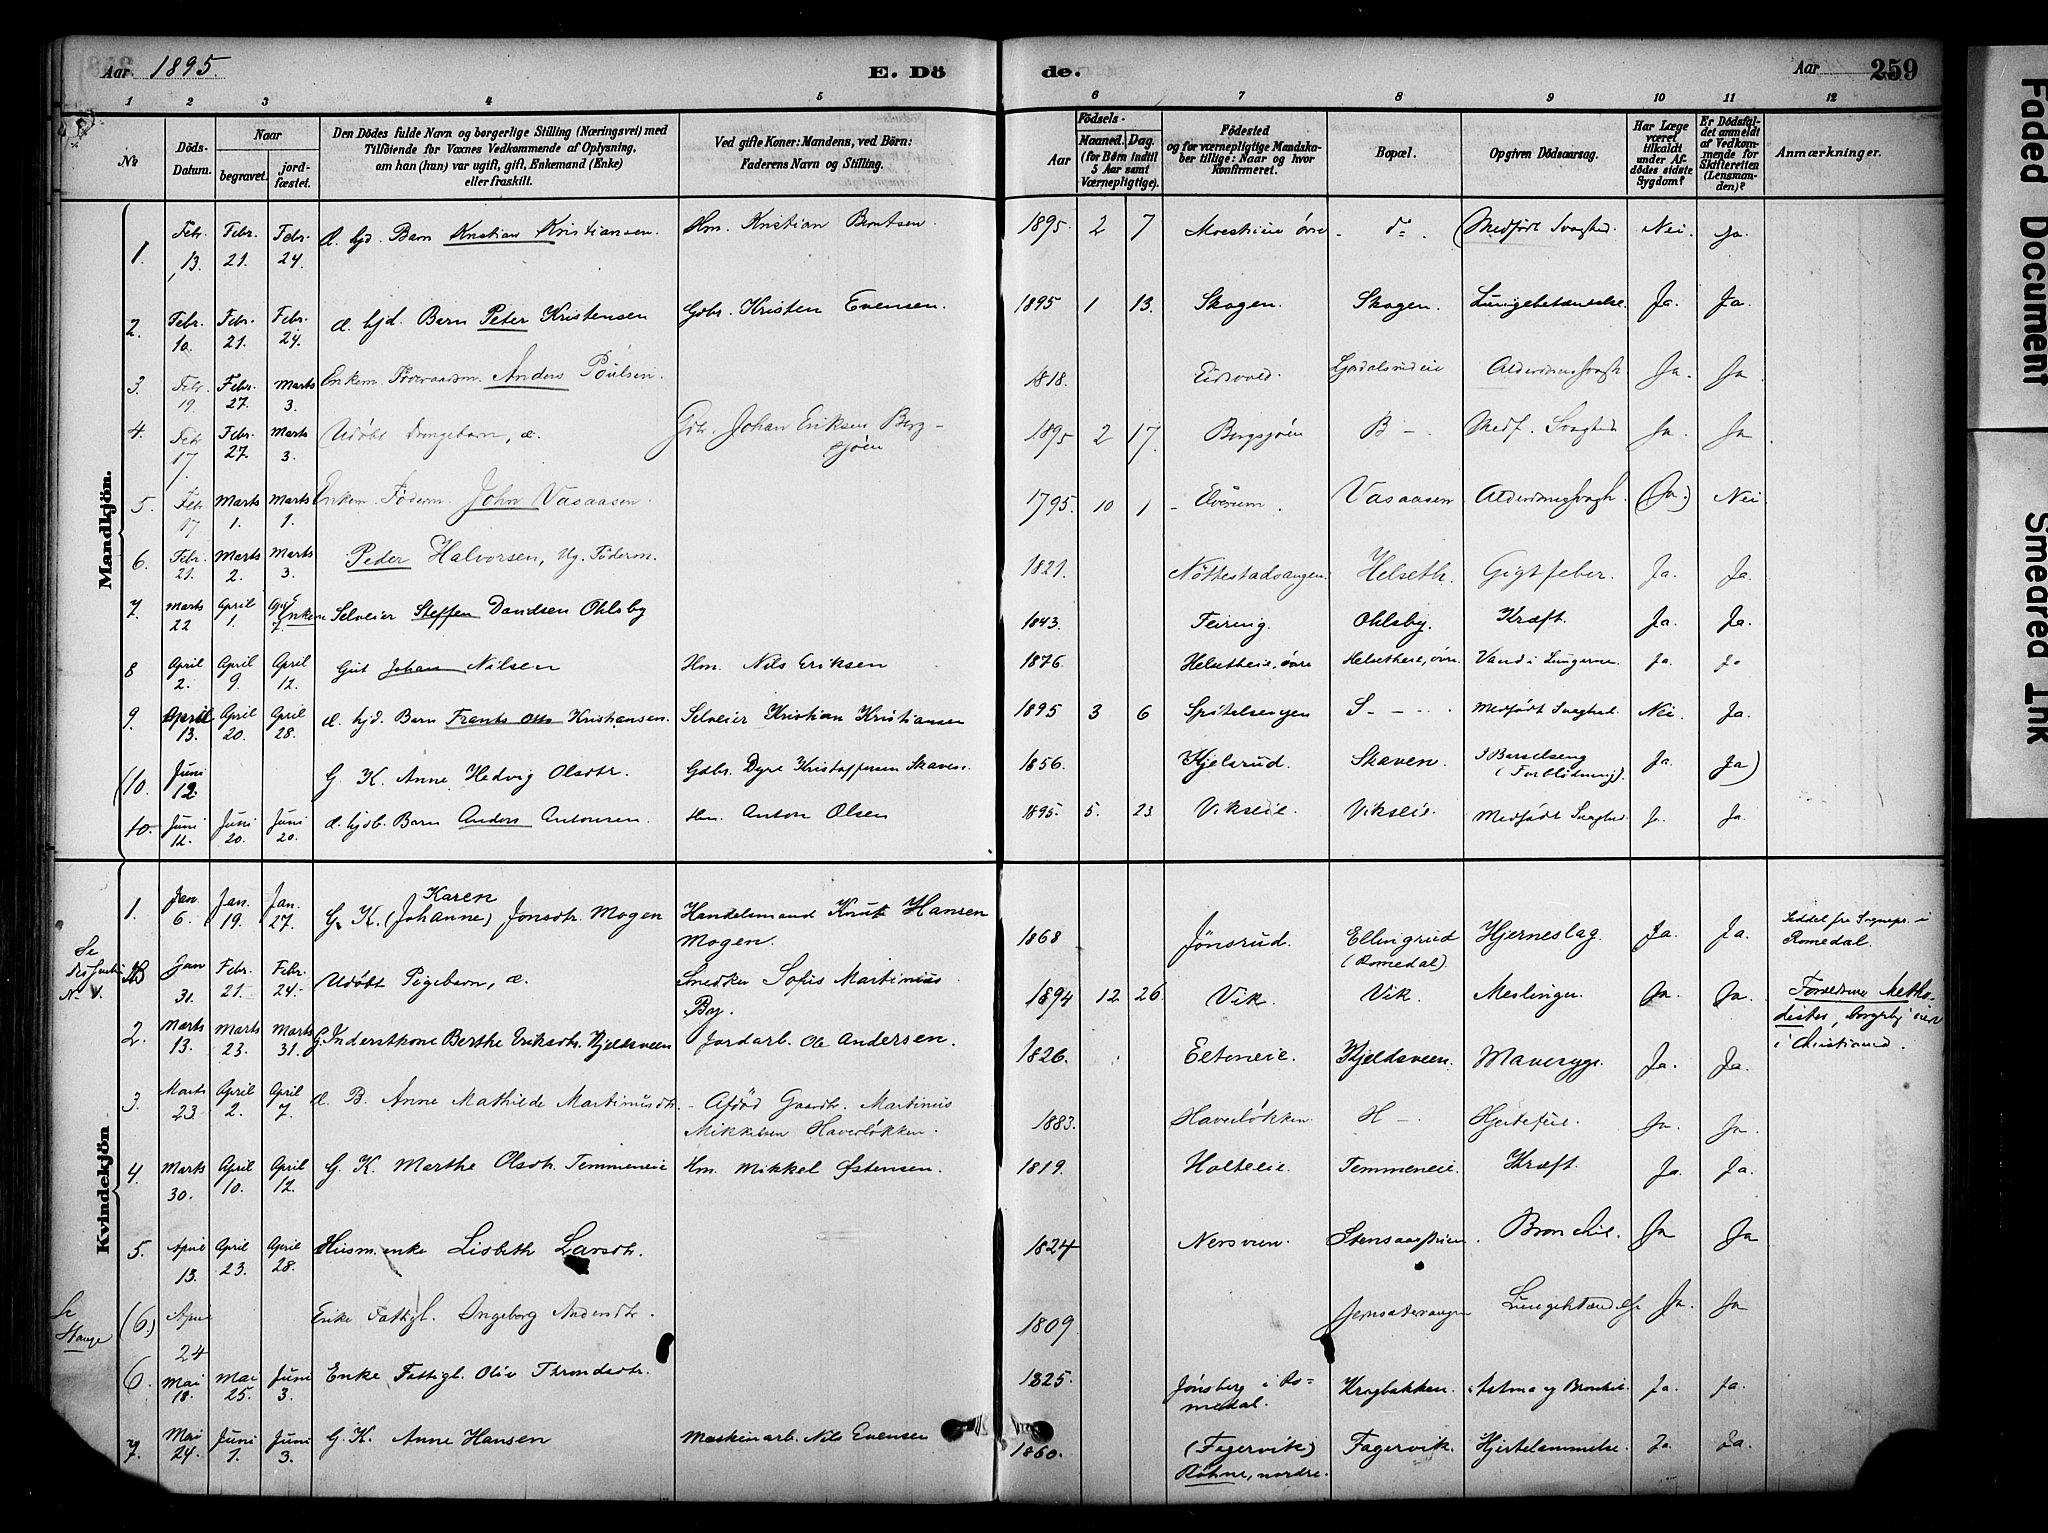 Aar 1895.
E. Dö
de.
Aar
259
1 2 3 4 5 6 7 8 9 10 11 12
No
Döds-Datum.
Naar
begravet.
jord-fæstet.
Den Dödes fulde Navn og borgerlige Stilling (Næringsvei) med
Tilföiende for Voxnes Vedkommende af Oplysning,
om han (hun) var ugift, gift, Enkemand (Enke)
eller fraskilt.
Ved gifte Koner: Mandens, ved Börn:
Faderens Navn og Stilling.
Födsels-
Aar
Maaned. Dag.
(for Börn indtil
5 Aar samt
Værnepligtige).
Födested
og for værnepligtige Mandska-
ber tillige: Naar og hvor
konfirmeret.
Bopæl.
Opgiven Dödsaarsag.
Har Læge
været
tilkaldt
under Af-
dödes sidste
Sygdom?
Er Dödsfal-
det anmeldt
af Vedkom-
mende for
Skifteretten
(Lensman-
den)?
Anmærkninger.
Mandkjön.
1. Febr. 13. Febr. 21. Febr. 24. æ. hjd. Barn Kristian Kristiansen. Hm. Kristian Berntsen. 1895. 2 7 øvre - do - Medfødt Svaghed. Nei. Ja.
2. Febr. 10. Febr. 21. Febr. 24. æ. hjd. Barn Peter Kristensen Gdbr. Kristen Evensen. 1895 1 13. Skogen. Skogen. Lungebetændelse. Ja. Ja.
3. Febr. 19. Febr. 27. Marts 3. Enkem. Føderaadsm. Anders Poulsen. 1818. Eidsvold. Alderdomssvagh. Ja. Ja
4. Febr 17. Febr. 27. Marts 3. Udøbt Drengebarn, æ. Gdbr. Johan Eriksen Berg-
sjøen 1895 2 17. Bergsjøen B -. Medf. Svaghed Ja. Ja
5. Febr. 17 Marts 1. Marts 1. Enkem. Føderm. John Vasaasen. 1795. 10 1 - Elverum. Vasaasen Alderdomssvagh. (Ja.) Nei
6. Febr. 21. Marts 2. Marts 3. Peder Halvorsen, Ug. Føderm. 1821. Nøttestadvangen. Helseth. Gigtfeber. Ja. Ja.
7. Marts 22 April 1. April 7. Enkem Selveier Steffen Davidsen Ohlsby 1843. Feiring. Ohlsby. Kræft. Ja. Ja.
8 April 2. April 9. April 12. Gut Johan Nilsen Hm. Nils Eriksen 1876. Helsetheie, øvre Helsetheie, øvre. Vand i Lungerne. Ja. Ja
9. April 13. April 20. April 28. æ. hjd. Barn Frants Otto Kristiansen. Selveier Kristian Kristiansen 1895 3 6 Spitalsengen S - - - Medfødt Svaghed. Nei. Ja.
(10. Juni 12. G. K. Anne Hedvig Olsdtr. Gdbr. Dyre Kristoffersen Skaven. 1856. Kjelsrud. Skaven. I Barselseng
(Forblødning). Ja. Ja)
10. Juni 12. Juni 20. Juni 20. æ. hjdb. Barn Anders Antonsen. Hm. Anton Olsen 1895. 5. 23. Vikseie. Vikseie. Medfødt Svaghed Ja. Ja.
Kvindekjön
1. Jan. 6. Jan. 19. Jan. 27. G. K. (Johanne) Karen Jonsdtr. Mogen Handelsmand Knut Hansen
Mogen. 1868 Jønsrud. Ellingrud
(Romedal). Hjerneslag. Ja. Ja. Seddel fra Sognepr. i
Romedal.
Se
No 1.
Jan 31. Febr. 21. Febr. 24. Udøbt Pigebarn, æ. Snedker Sofus Martinius
By. 1894 12. 26. Vik. Vik. Meslinger Ja. Ja. Forældrene Metho-
dister,
i Christiania.
2. Marts 13. Marts 23. Marts 31. G. Inderstkone Berthe Eriksdtr. Kjeldsveen Jordarb. Ole Andersen. 1826. Eltoneie. Kjeldsveen. Mavesyge. Ja. Ja.
3. Marts 23 April 2. April 7. æ. B. Anne Mathilde Martinusdtr. - Afdød Gaardbr. Martinus
Mikkelsen Haverløkken. 1883. Haverløkken. H -. Hjertefeil. Ja. Ja.
4. Marts 30. April 10. April 12. G. K. Marthe Olsdtr. Temmeneie Hm. Mikkel Østensen. 1819. Holteeie. Temmeneie. Kræft. Ja. Ja.
5. April 13. April 23. April 28. Husm.enke Lisbeth Larsdtr. 1824 Nersveen Bronchit. Ja Ja
Se
Stange
(6.) April 24 Enke Fattigl. Ingeborg Andersdtr. 1809 Lungebetændelse Ja. Ja
6. Mai 18. Mai 25. Juni 3. Enke Fattigl. Oliv Throndsdtr. 1825. Jønsberg i Ro-
medal. Krogbakken. Astma og Bronkit. Ja. Ja.
7. Mai 24. Juni 1. Juni 3. G. K. Anne Hansen Maskinarb. Nils Evensen 1860. (Fagervik)
Røhne, nordre. Fagervik. Hjertelammelse. Ja. Ja.
Faded Document
Smeared Ink